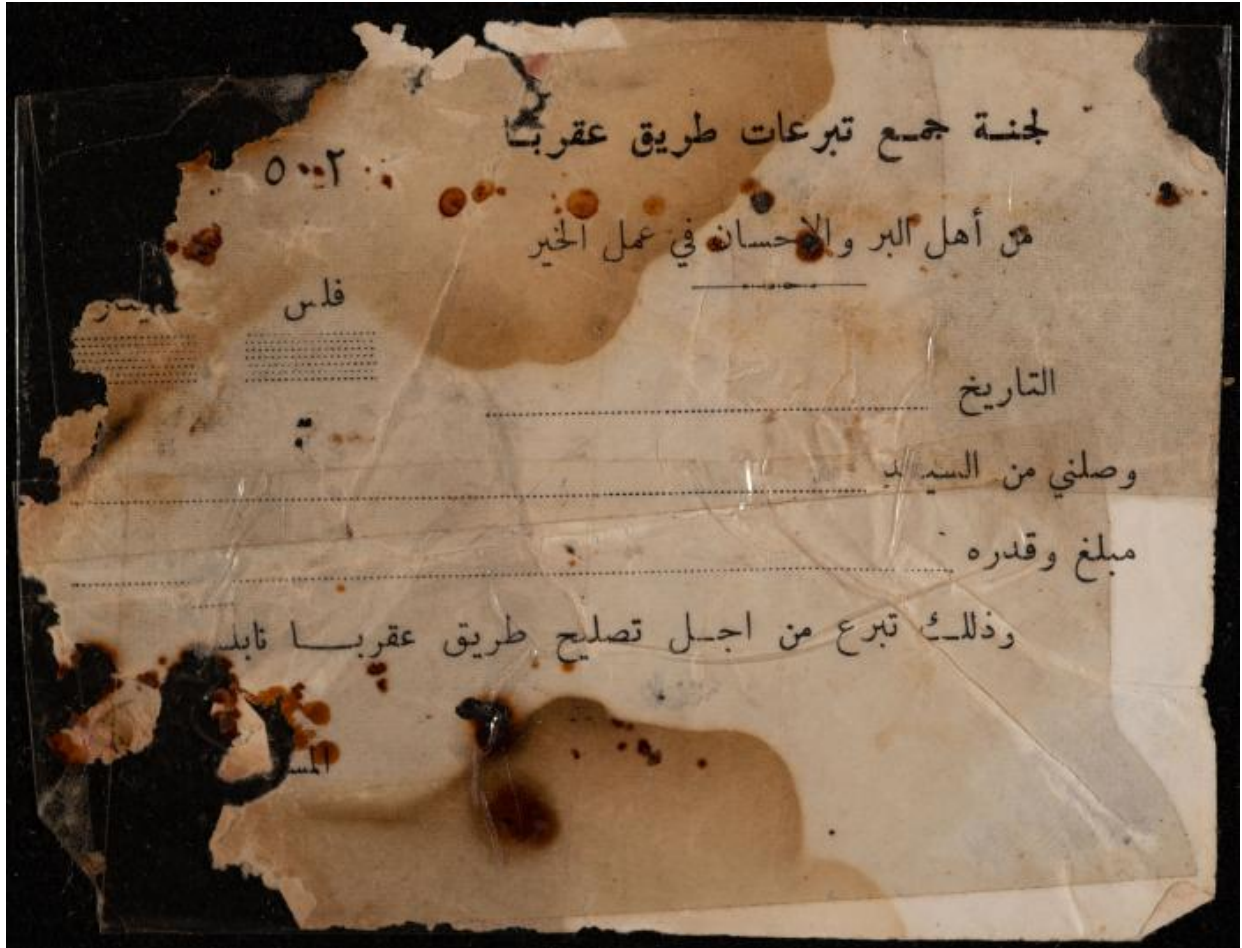 لجنة جمع تبرعات طريق عقربا
٥٠٠٢
من أهل البر والإحسان في عمل الخير
فلس
التاريخ
وصلني من السيد
مبلغ وقدره
وذلك تبرع من اجل تصليح طريق عقربا نابلـ
المسـ